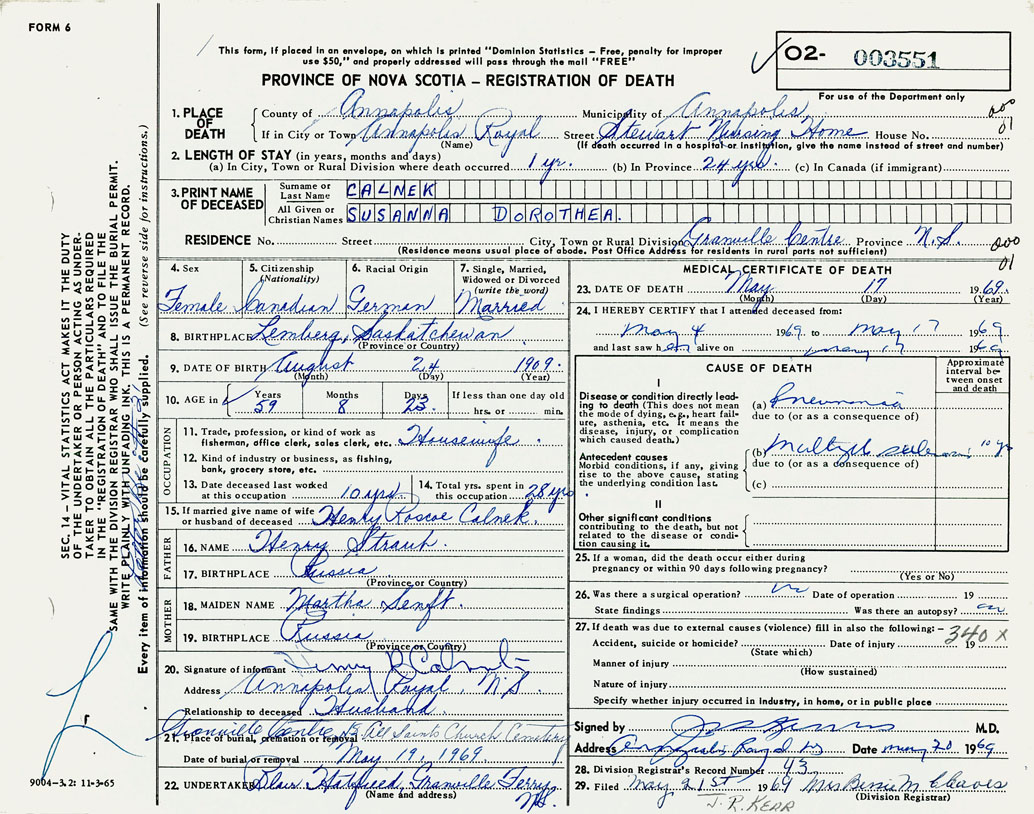 FORM 6
This form, if placed in an envelope, on which is printed "Dominion Statistics – Free, penalty for improper
use $50," and properly addressed will pass through the mail "FREE"
PROVINCE OF NOVA SCOTIA – REGISTRATION OF DEATH
O2- 003551
For use of the Department only
1. PLACE OF DEATH County of Annapolis Municipality of Annapolis
If in City or Town Annapolis Royal Street Stewart Nursing Home House No.
(Name) (If death occurred in a hospital or institution, give the name instead of street and number)
000
01
2. LENGTH OF STAY (in years, months and days)
(a) In City, Town or Rural Division where death occurred 1 yr. (b) In Province 24 yrs. (c) In Canada (if immigrant)
3. PRINT NAME OF DECEASED Surname or Last Name CALNEK
All Given or Christian Names SUSANNA DOROTHEA.
RESIDENCE No. Street City, Town or Rural Division Granville Centre Province N.S.
(Residence means usual place of abode. Post Office Address for residents in rural parts not sufficient)
000
01
4. Sex Female
5. Citizenship (Nationality) Canadian
6. Racial Origin German
7. Single, Married, Widowed or Divorced (write the word) Married
8. BIRTHPLACE Lemberg, Saskatchewan
(Province or Country)
9. DATE OF BIRTH August 24 1909.
(Month) (Day) (Year)
10. AGE in Years 59 Months 8 Days 23 If less than one day old
hrs. or min.
OCCUPATION
11. Trade, profession, or kind of work as
fisherman, office clerk, sales clerk, etc. Housewife.
12. Kind of industry or business, as fishing,
bank, grocery store, etc.
13. Date deceased last worked
at this occupation 10 yrs.
14. Total yrs. spent in
this occupation 28 yrs.
15. If married give name of wife
or husband of deceased Henry Roscoe Calnek.
FATHER
16. NAME Henry Straub.
17. BIRTHPLACE Russia
(Province or Country)
MOTHER
18. MAIDEN NAME Martha Senft.
19. BIRTHPLACE Russia
(Province or Country)
20. Signature of informant Henry R Calnek
Address Annapolis Royal, N.S.
Relationship to deceased Husband
21. Place of burial, cremation or removal Granville Centre All Saints Church Cemetery
Date of burial or removal May 19, 1969
22. UNDERTAKER Hatfield, Granville Ferry
(Name and address) N.S.
MEDICAL CERTIFICATE OF DEATH
23. DATE OF DEATH May 17 1969.
(Month) (Day) (Year)
24. I HEREBY CERTIFY that I attended deceased from:
May 4 1969 to May 17 1969
and last saw her alive on May 17 1969
CAUSE OF DEATH
Approximate interval between onset and death
I
Disease or condition directly leading
to death (This does not mean
the mode of dying, e.g., heart failure,
asthenia, etc. It means the
disease, injury, or complication
which caused death.)
(a) Pneumonia
due to (or as a consequence of)
Antecedent causes
Morbid conditions, if any, giving
rise to the above cause, stating
the underlying condition last.
(b) Multiple sclerosis 10 yr
due to (or as a consequence of)
(c)
II
Other significant conditions
contributing to the death, but not
related to the disease or condition
causing it.
25. If a woman, did the death occur either during
pregnancy or within 90 days following pregnancy?
(Yes or No)
26. Was there a surgical operation? no Date of operation 19
State findings Was there an autopsy? no
27. If death was due to external causes (violence) fill in also the following: –
340 X
Accident, suicide or homicide? Date of injury 19
(State which)
Manner of injury
(How sustained)
Nature of injury
Specify whether injury occurred in industry, in home, or in public place
Signed by M.D.
Address Annapolis Royal NS Date May 20 1969
28. Division Registrar's Record Number 43
29. Filed May 21st 1969 Mrs Bessie M Cleaves
(Division Registrar)
J. R. KERR
SEC. 14 – VITAL STATISTICS ACT MAKES IT THE DUTY
OF THE UNDERTAKER OR PERSON ACTING AS UNDERTAKER
TO OBTAIN ALL THE PARTICULARS REQUIRED
IN THE "REGISTRATION OF DEATH" AND TO FILE THE
SAME WITH THE DIVISION REGISTRAR WHO SHALL ISSUE THE BURIAL PERMIT.
WRITE PLAINLY WITH UNFADING INK. THIS IS A PERMANENT RECORD.
Every item of information should be carefully supplied. (See reverse side for instructions.)
9004-3.2: 11-3-65